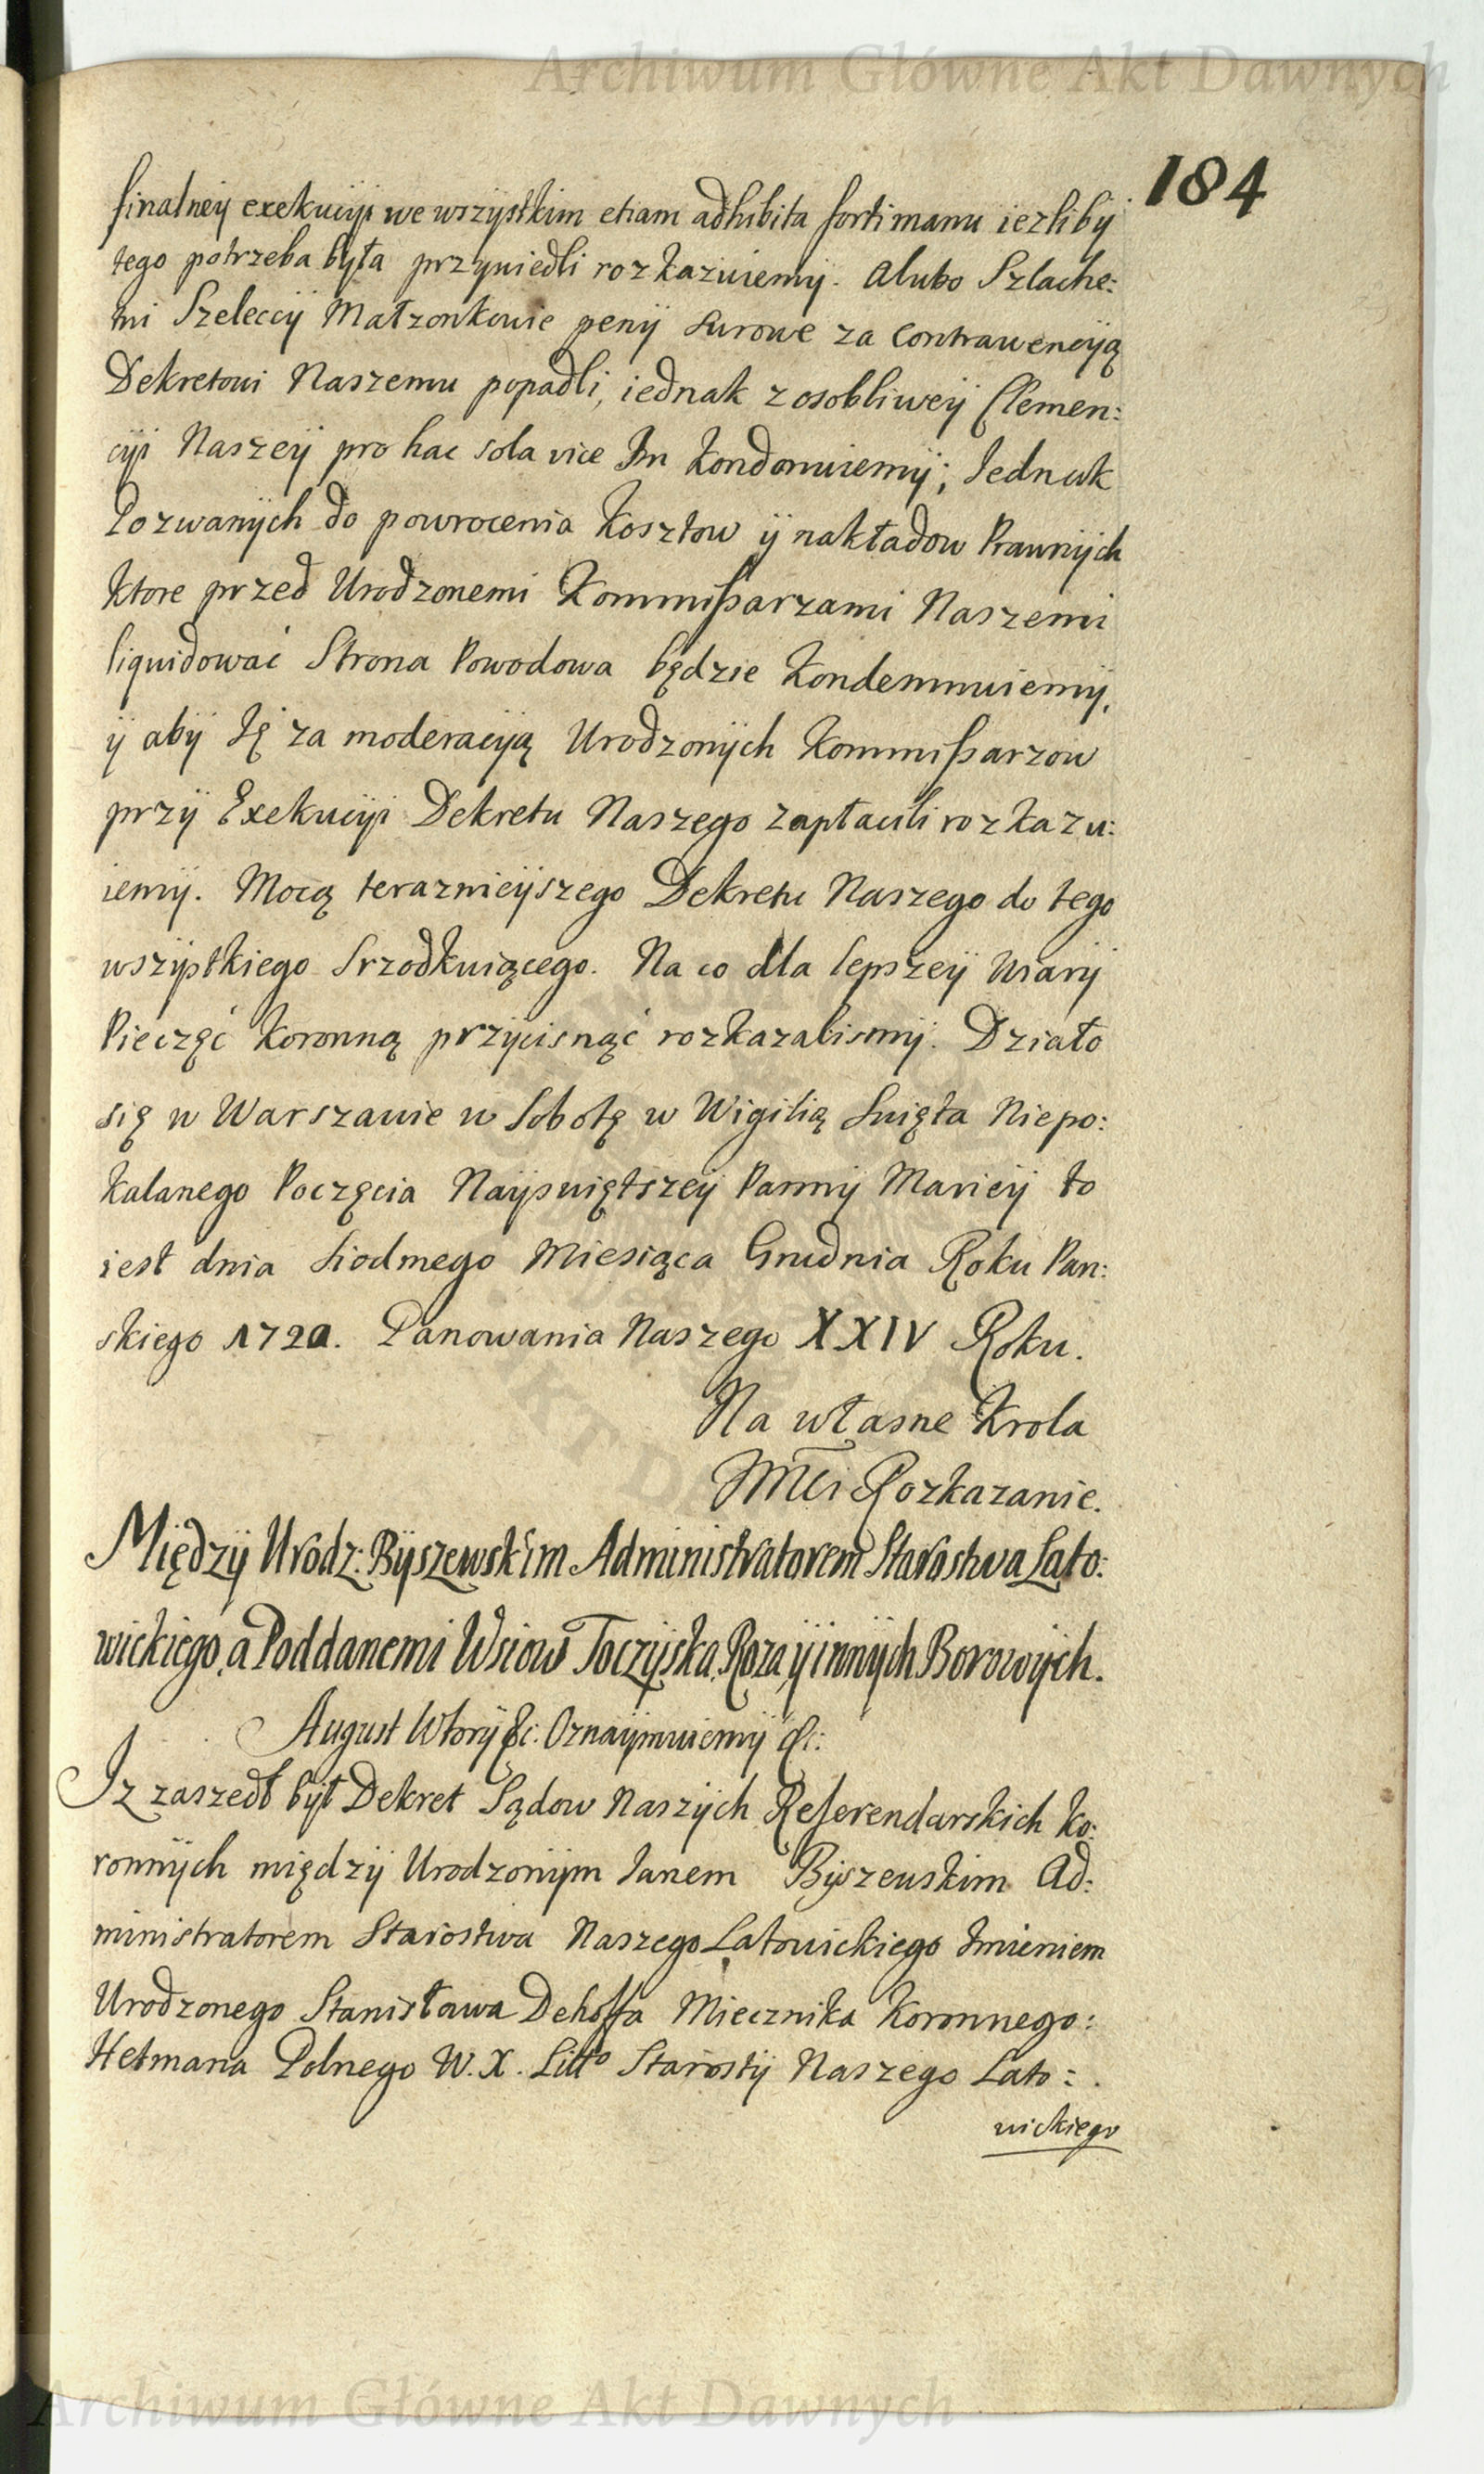 Archiwum Główne Akt Dawnych
184
finalneÿ exekucÿi we wszÿstkim etiam adhibita forti manu iezlibÿ
tego potrzeba bÿła przÿwiedli rozkazuiemÿ. Alubo Szlache:
tni Szeleccÿ Małzonkowie penÿ surowe za contrawencÿą
Dekretowi Naszemu popadli, iednak z osobliweÿ Clemen:
cÿi Naszeÿ pro hac sola vice Im kondonuiemÿ; Iednak
Pozwanÿch do powrocenia kosztow ÿ nakładow Prawnÿch
ktore przed Urodzonemi Kommißarzami Naszemi
liquidować Strona Powodowa będzie kondemnuiemÿ,
ÿ abÿ Ię za moderacÿą Urodzonÿch Kommißarzow
przÿ Exekucÿi Dekretu Naszego zapłacili rozkazu:
iemÿ. Mocą teraznieÿszego Dekretu Naszego do tego
wszÿstkiego srzodkuiącego. Na co dla lepszeÿ wiarÿ
Pieczęć Koronną przÿcisnąć rozkazalismÿ. Działo
się w Warszawie w Sobotę w Wigilią Swięta Niepo:
kalanego Poczęcia Naÿswiętszeÿ Pannÿ Marieÿ to
iest dnia siodmego Miesiąca Grudnia Roku Pan:
skiego 1720. Panowania Naszego XXIV Roku.
Na własne Krola
JMći Rozkazanie.
Międzÿ Urodz: Bÿszewskim Administratorem Starostwa Lato:
wickiego, a Poddanemi Wsiow Toczÿska, Roza, ÿ innÿch Borowÿch.
August Wtorÿ &c. Oznaÿmuiemÿ &c:
Iz zaszedł bÿł Dekret Sądow Naszÿch Referendarskich Ko:
ronnÿch międzÿ Urodzonÿm Janem Bÿszewskim Ad:
ministratorem Starostwa Naszego Latowickiego Imieniem
Urodzonego Stanisława Dehoffa Miecznika Koronnego:
Hetmana Polnego W. X. Litto Starostÿ Naszego Lato:
wickiego
Archiwum Główne Akt Dawnych